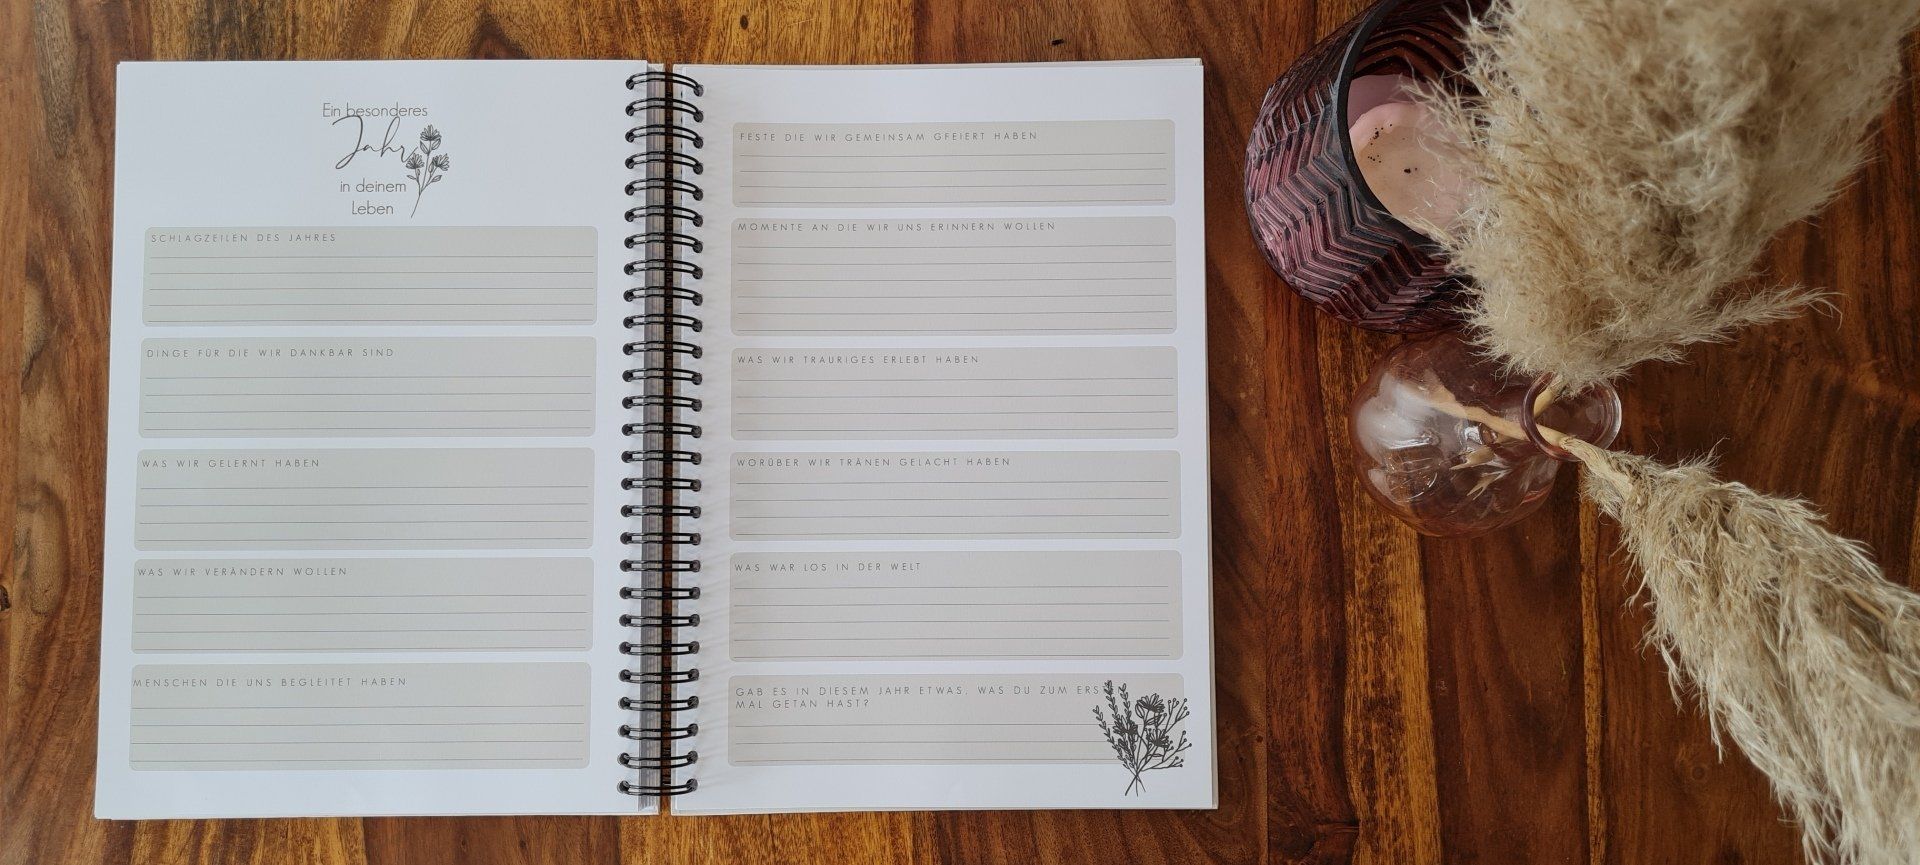 Ein besonderes
Jahr
in deinem
Leben
SCHLAGZEILEN DES JAHRES
DINGE FÜR DIE WIR DANKBAR SIND
WAS WIR GELERNT HABEN
WAS WIR VERÄNDERN WOLLEN
MENSCHEN DIE UNS BEGLEITET HABEN
FESTE DIE WIR GEMEINSAM GFEIERT HABEN
MOMENTE AN DIE WIR UNS ERINNERN WOLLEN
WAS WIR TRAURIGES ERLEBT HABEN
WORÜBER WIR TRÄNEN GELACHT HABEN
WAS WAR LOS IN DER WELT
GAB ES IN DIESEM JAHR ETWAS, WAS DU ZUM ERS
MAL GETAN HAST?